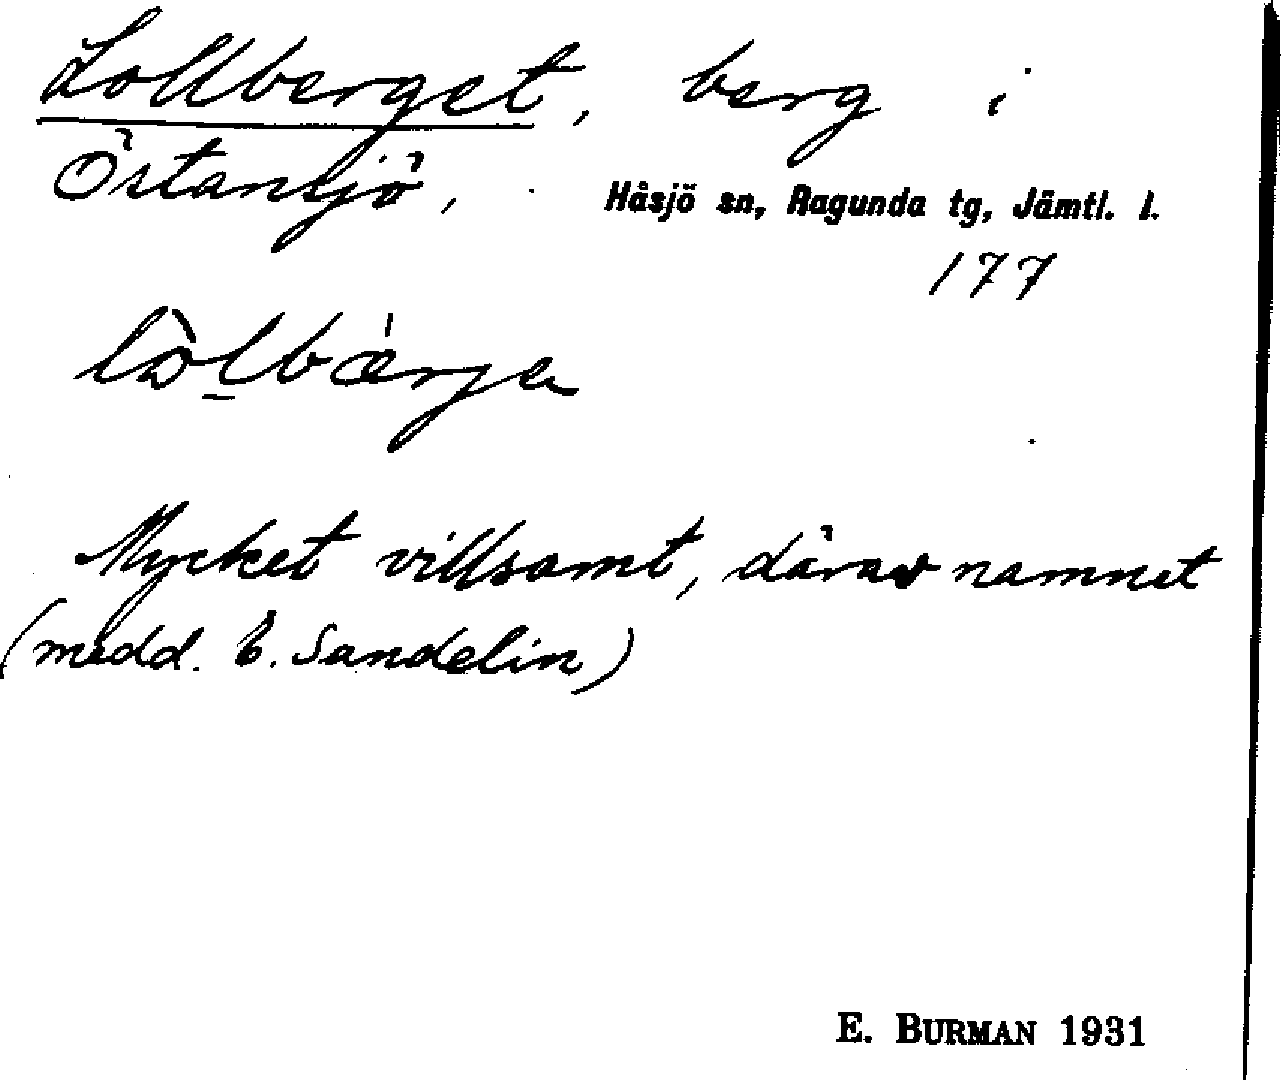 Lollberget, berg i
Östansjö, Håsjö sn, Ragunda tg, Jämtl. l.
177
Mycket villsamt, därav namnet
(medd. E. Sandelin)
E. BURMAN 1931